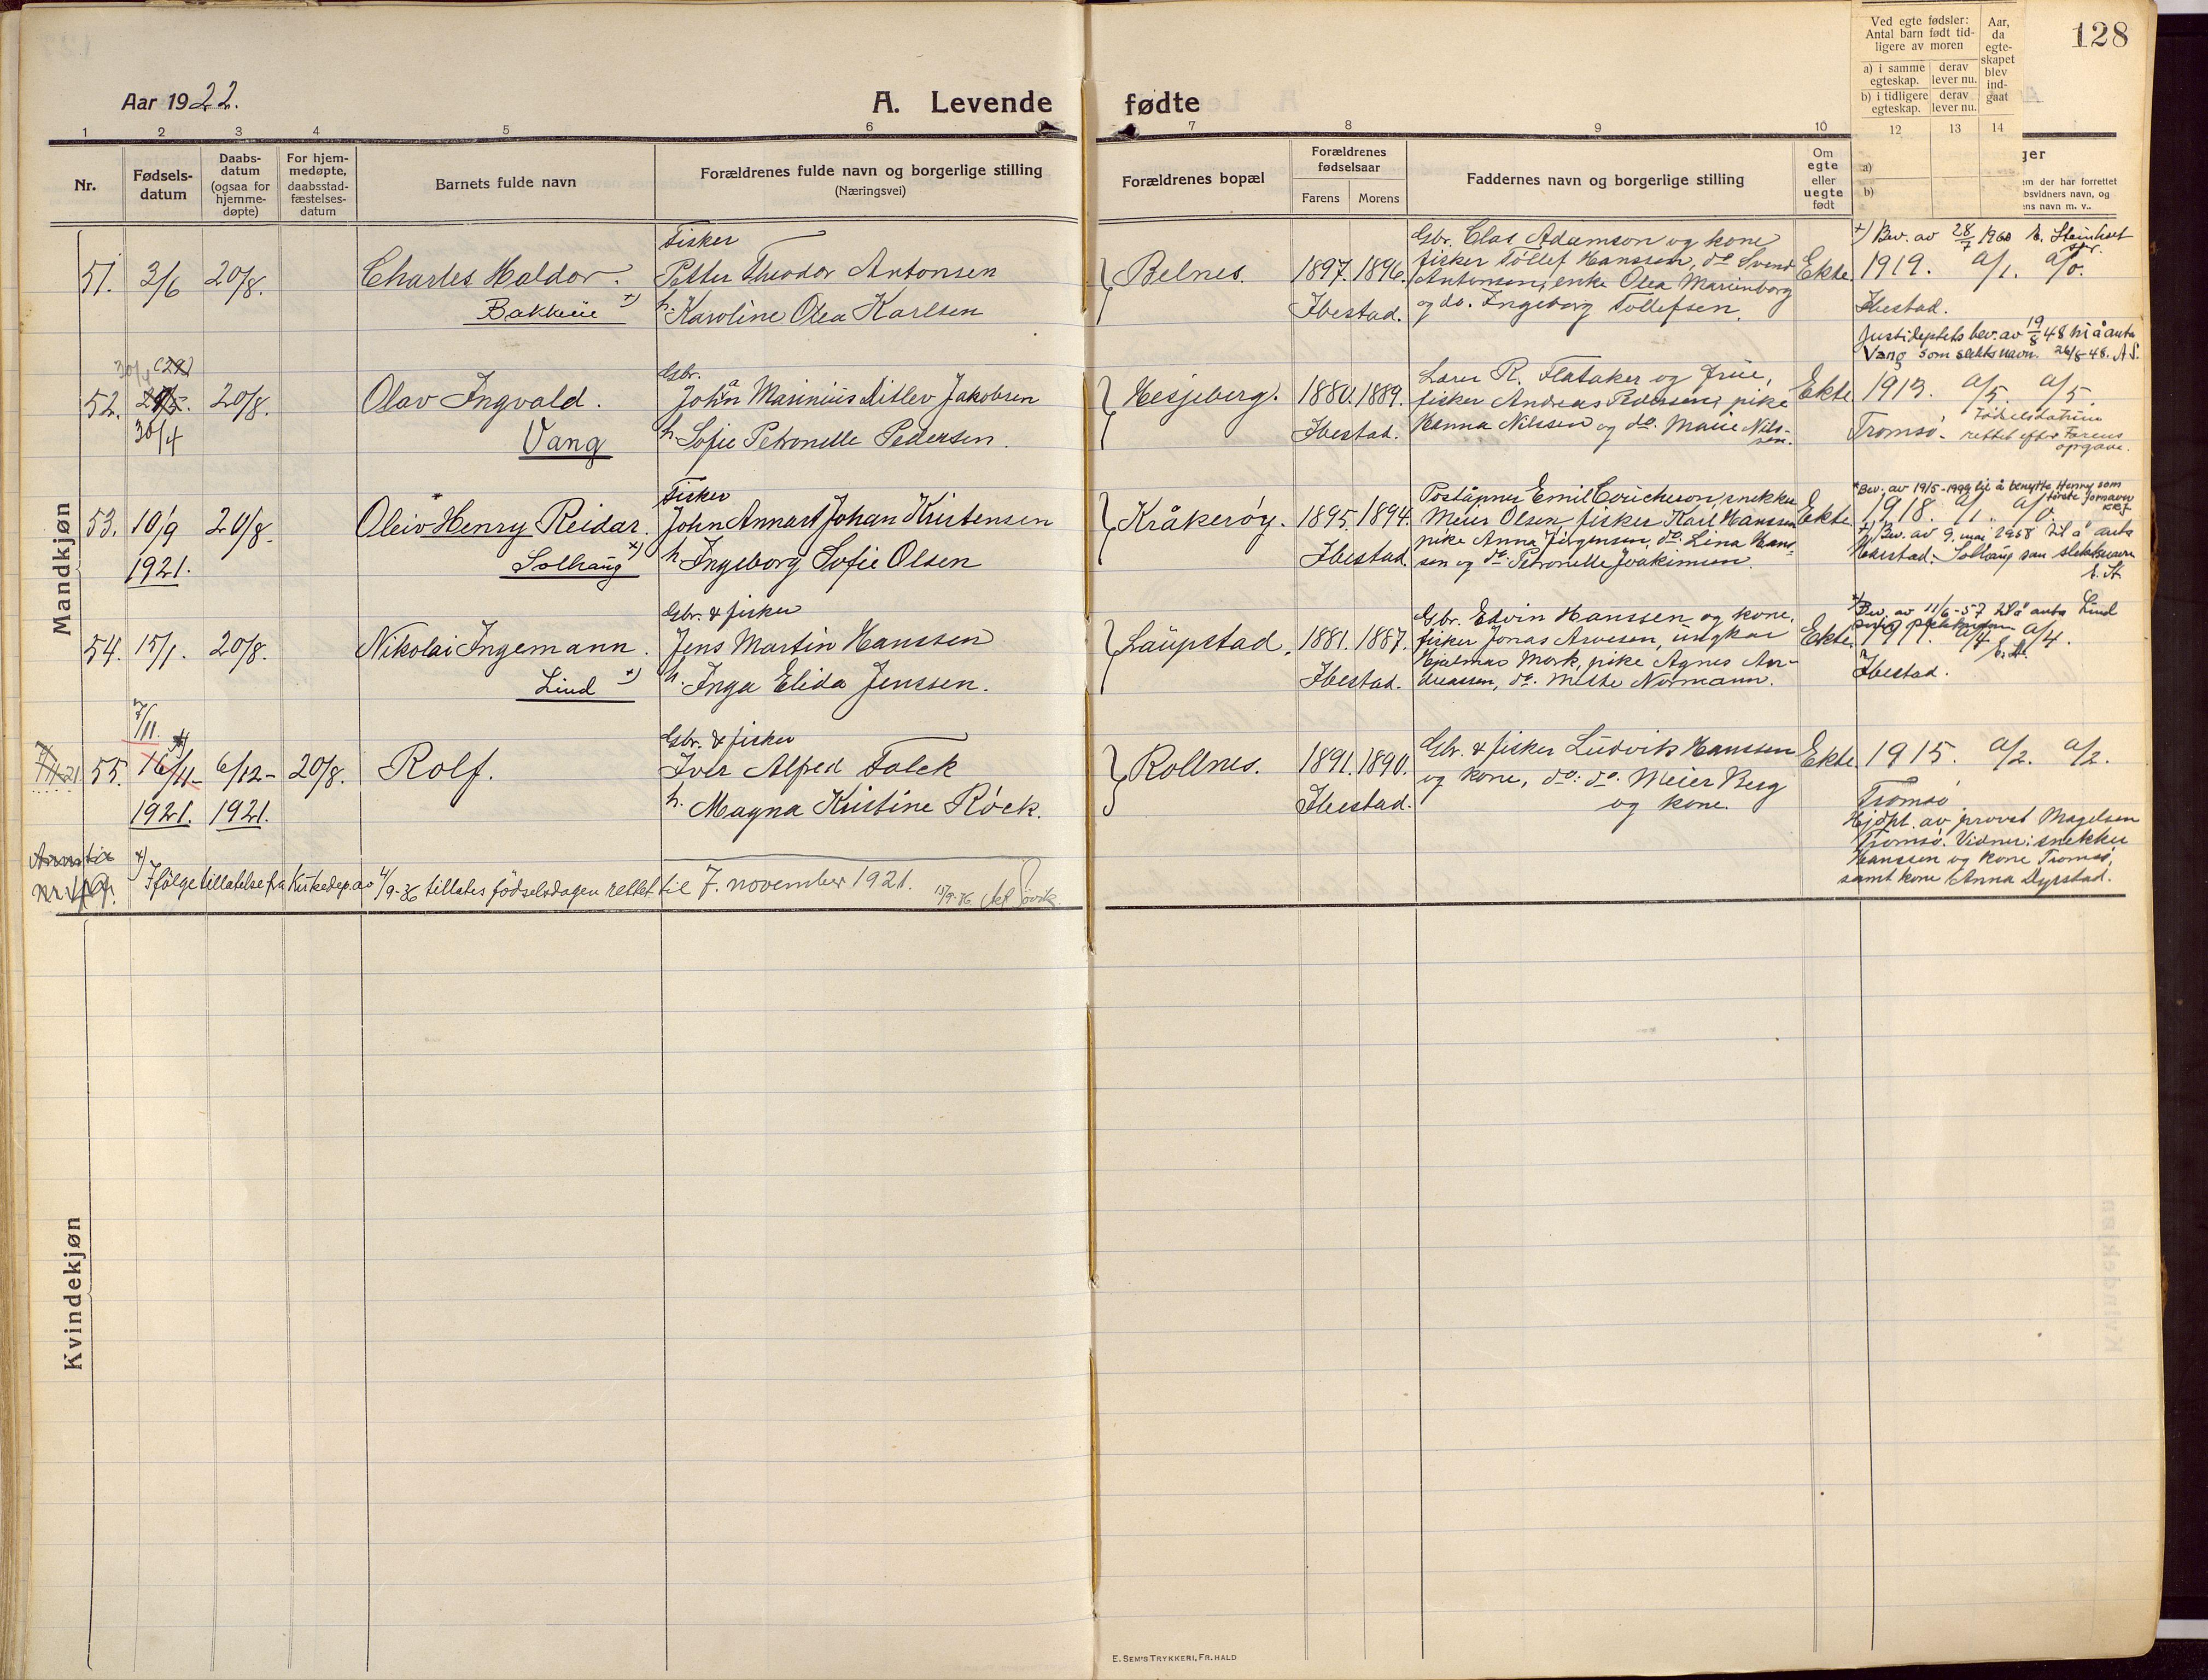 Aar 1922.
A. Levende fødte
128
Ved egte fødsler:
Antal barn født tid-
ligere av moren
a) i samme egteskap.
derav lever nu.
b) i tidligere egteskap.
derav lever nu.
Aar, da egte-skapet blev ind-gaat
1 2 3 4 5 6 7 8 9 10 12 13 14
Nr.
Fødsels-
datum
Daabs-
datum
(ogsaa for
hjemme-
døpte)
For hjem-
medøpte,
daabsstad-
fæstelses-
datum
Barnets fulde navn
Forældrenes fulde navn og borgerlige stilling
(Næringsvei)
Forældrenes bopæl
Forældrenes
fødselsaar
Farens Morens
Faddernes navn og borgerlige stilling
Om
egte
eller
uegte
født
a)
b)
ger
em der har forrettet
bsvidners navn, og
ens navn m. v..
Mandkjøn
51. 3/6 20/8.
Charles Haldor.
Bakkeie x)
Fisker
Petter Theodor Antonsen
h. Karoline Olea Karlsen
Belnes. 1897. 1896.
Ibestad.
Gbr. Clas Adamson og kone
fisker Tollef Hanssen, do Svend
Antonsen, enke Olea Marienborg
og do. Ingeborg Tollefsen.
Ekte.
x) Bev. av 28/7 1960
1919. a/1. a/0.
Ibestad.
52. 30/4 20/8.
Olav Ingvald.
Vang
Gbr.
Johan Marinius Ditlev Jakobsen
h. Sofie Petronelle Pedersen.
Hesjeberg. 1880. 1889.
Ibestad.
Lærer R. Flataker og frue,
fisker Andreas Pedersen, pike
Hanna Nilssen og do. Marie Nils-
sen.
Ekte
Justisdeptets bev. av 19/8 48 til å anta
Vang som slektsnavn. 26/8-48. A S.
1913. a/5. a/5.
Tromsø. Fødselsdatum
rettet efter Farens
opgave.
53. 10/9 20/8.
1921.
Oleiv Henry Reidar.
Solhaug x)
Fisker
John Annart Johan Kristensen
h. Ingeborg Sofie Olsen
Kråkerøy. 1895. 1894.
Ibestad.
Poståpner Emil Coucheron, snekker
Meier Olsen, fisker Karl Hanssen
pike Anna Jørgensen, do. Lina Hans-
sen og do. Petronelle Joakimsen.
Ekte.
* Bev. av 19/5-1999 til å benytte Henry som
første fornavn
1918. a/1. a/0.
x) Bev. av 9. mai 1958 til å anta
Harstad. Solhaug som slektsnavn
E. St
54. 15/1. 20/8.
Nikolai Ingemann.
Lind x)
Gbr. & fisker
Jens Martin Hanssen
h. Inga Elida Jenssen.
Laupstad. 1881. 1887.
Ibestad.
Gbr. Edvin Hanssen og kone,
fisker Jonas Arnesen, ungkar
Hjalmar Mork, pike Agnes An-
dreassen, do. Meste Normann.
Ekte.
x) Bev. av 11/6-57 til å anta Lind
som slektsnavn
a/4 a/4.
Ibestad.
7/11.
55. 16/11- 6/12- 20/8.
1921. 1921.
Rolf.
Gbr. & fisker
Iver Alfred Falck
h. Magna Kristine Röck.
Rollnes. 1891. 1890.
Ibestad.
Gbr. & fisker Ludvik Hanssen
og kone, do. do. Meier Berg
og kone.
Ekte. 1915. a/2. a/2.
Tromsø
Hjdpt. av provst Magelsen
Tromsø. Vidner: snekker
Hanssen og kone Tromsø,
samt kone Anna Dyrstad.
x) Ifölge tillatelse fra Kirkedep. av 4/9-36 tillates födselsdagen rettet til 7. november 1921. 15/9-36
Kvindekjøn
E. SEM'S TRYKKERI, FR.HALD